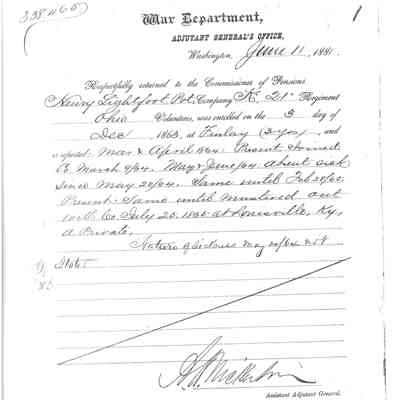 338465
1
War Department,
ADJUTANT GENERAL'S OFFICE,
Washington, June 11, 1881.
Respectfully returned to the Commissioner of Pensions
Henry Lightfoot Pvt, Company K, 21st Regiment
Ohio Volunteers, was enrolled on the 3 day of
Dec 1863, at Finlay (3 yrs), and
is reported: Mar & April 1864 Present Joined
Co. March 9/64. May & June/64 absent sick
since May 20/64. Same until Feb 28/65
Present. Same until mustered out
with Co. July 25. 1865 at Louisville, Ky,
a Private.
Nature of disease May 20/64 not
Stated
Assistant Adjutant General.